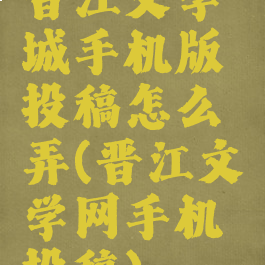 晋江文学
城手机版
投稿怎么
弄(晋江文
学网手机
投稿)